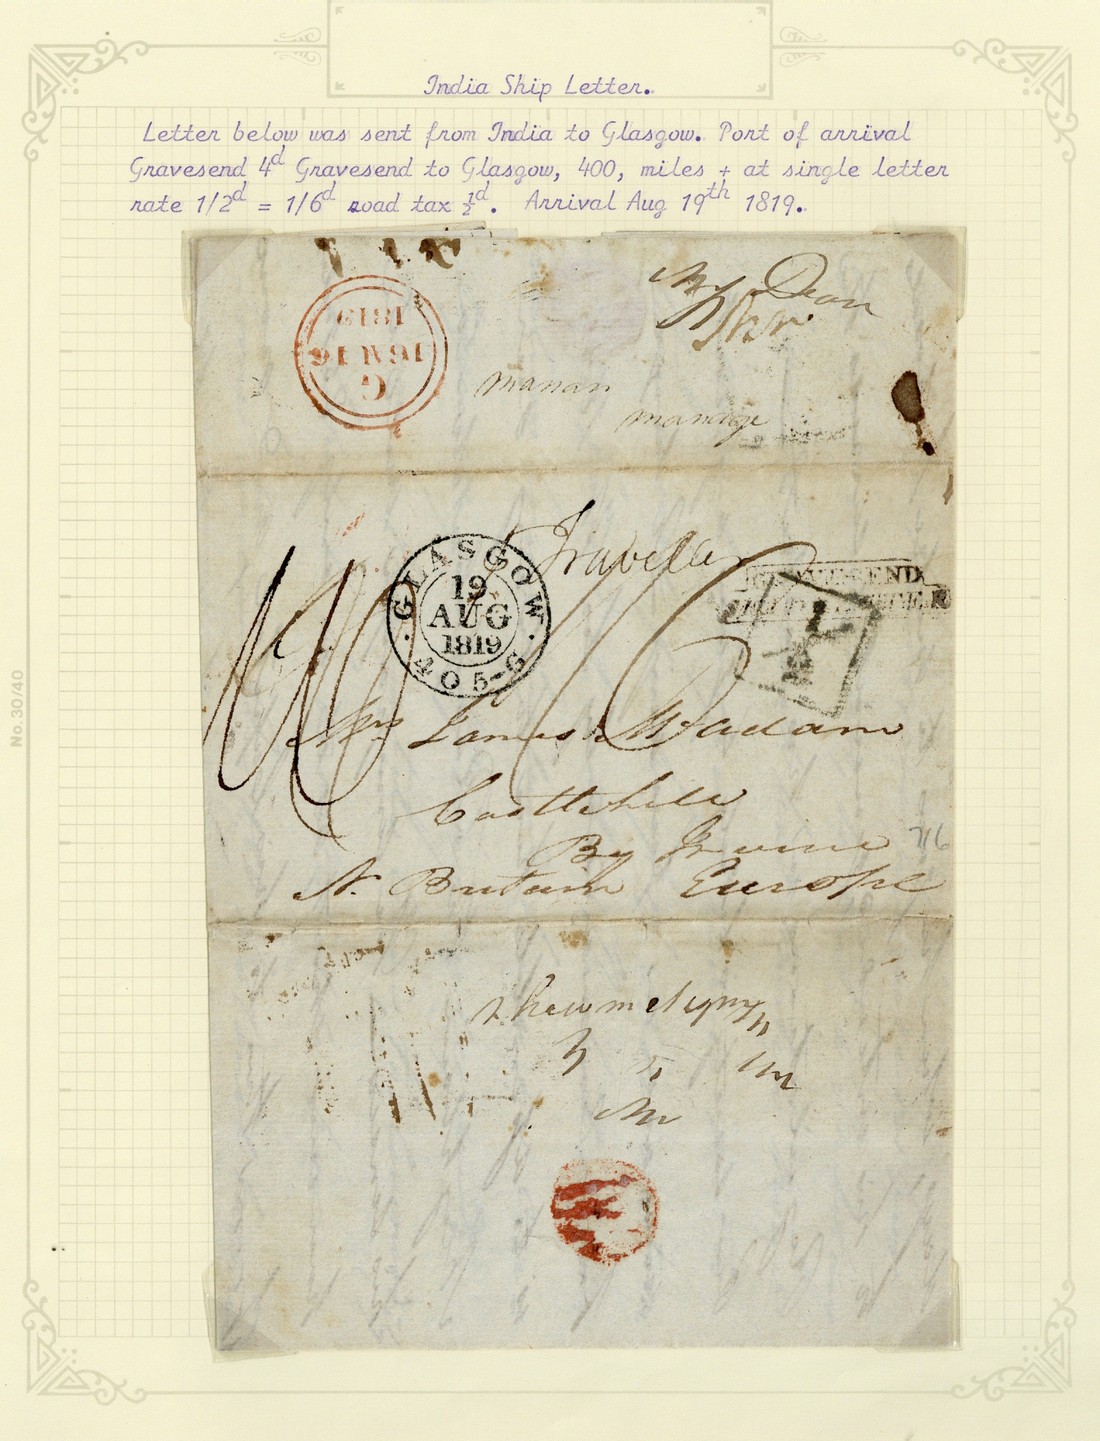 India Ship Letter.
Letter below was sent from India to Glasgow. Port of arrival
Gravesend 4d Gravesend to Glasgow, 400, miles + at single letter
rate 1/2d = 1/6d road tax ½d. Arrival Aug 19th 1819.
My Dear
Sir
1819
G
manan
manage
Traveller
GLASGOW
19
AUG
1819
405-G
GRAVESEND
½
Mrs James Mcadam
Castlehill
By Irvine
716
N. Britain Europe
No.30/40